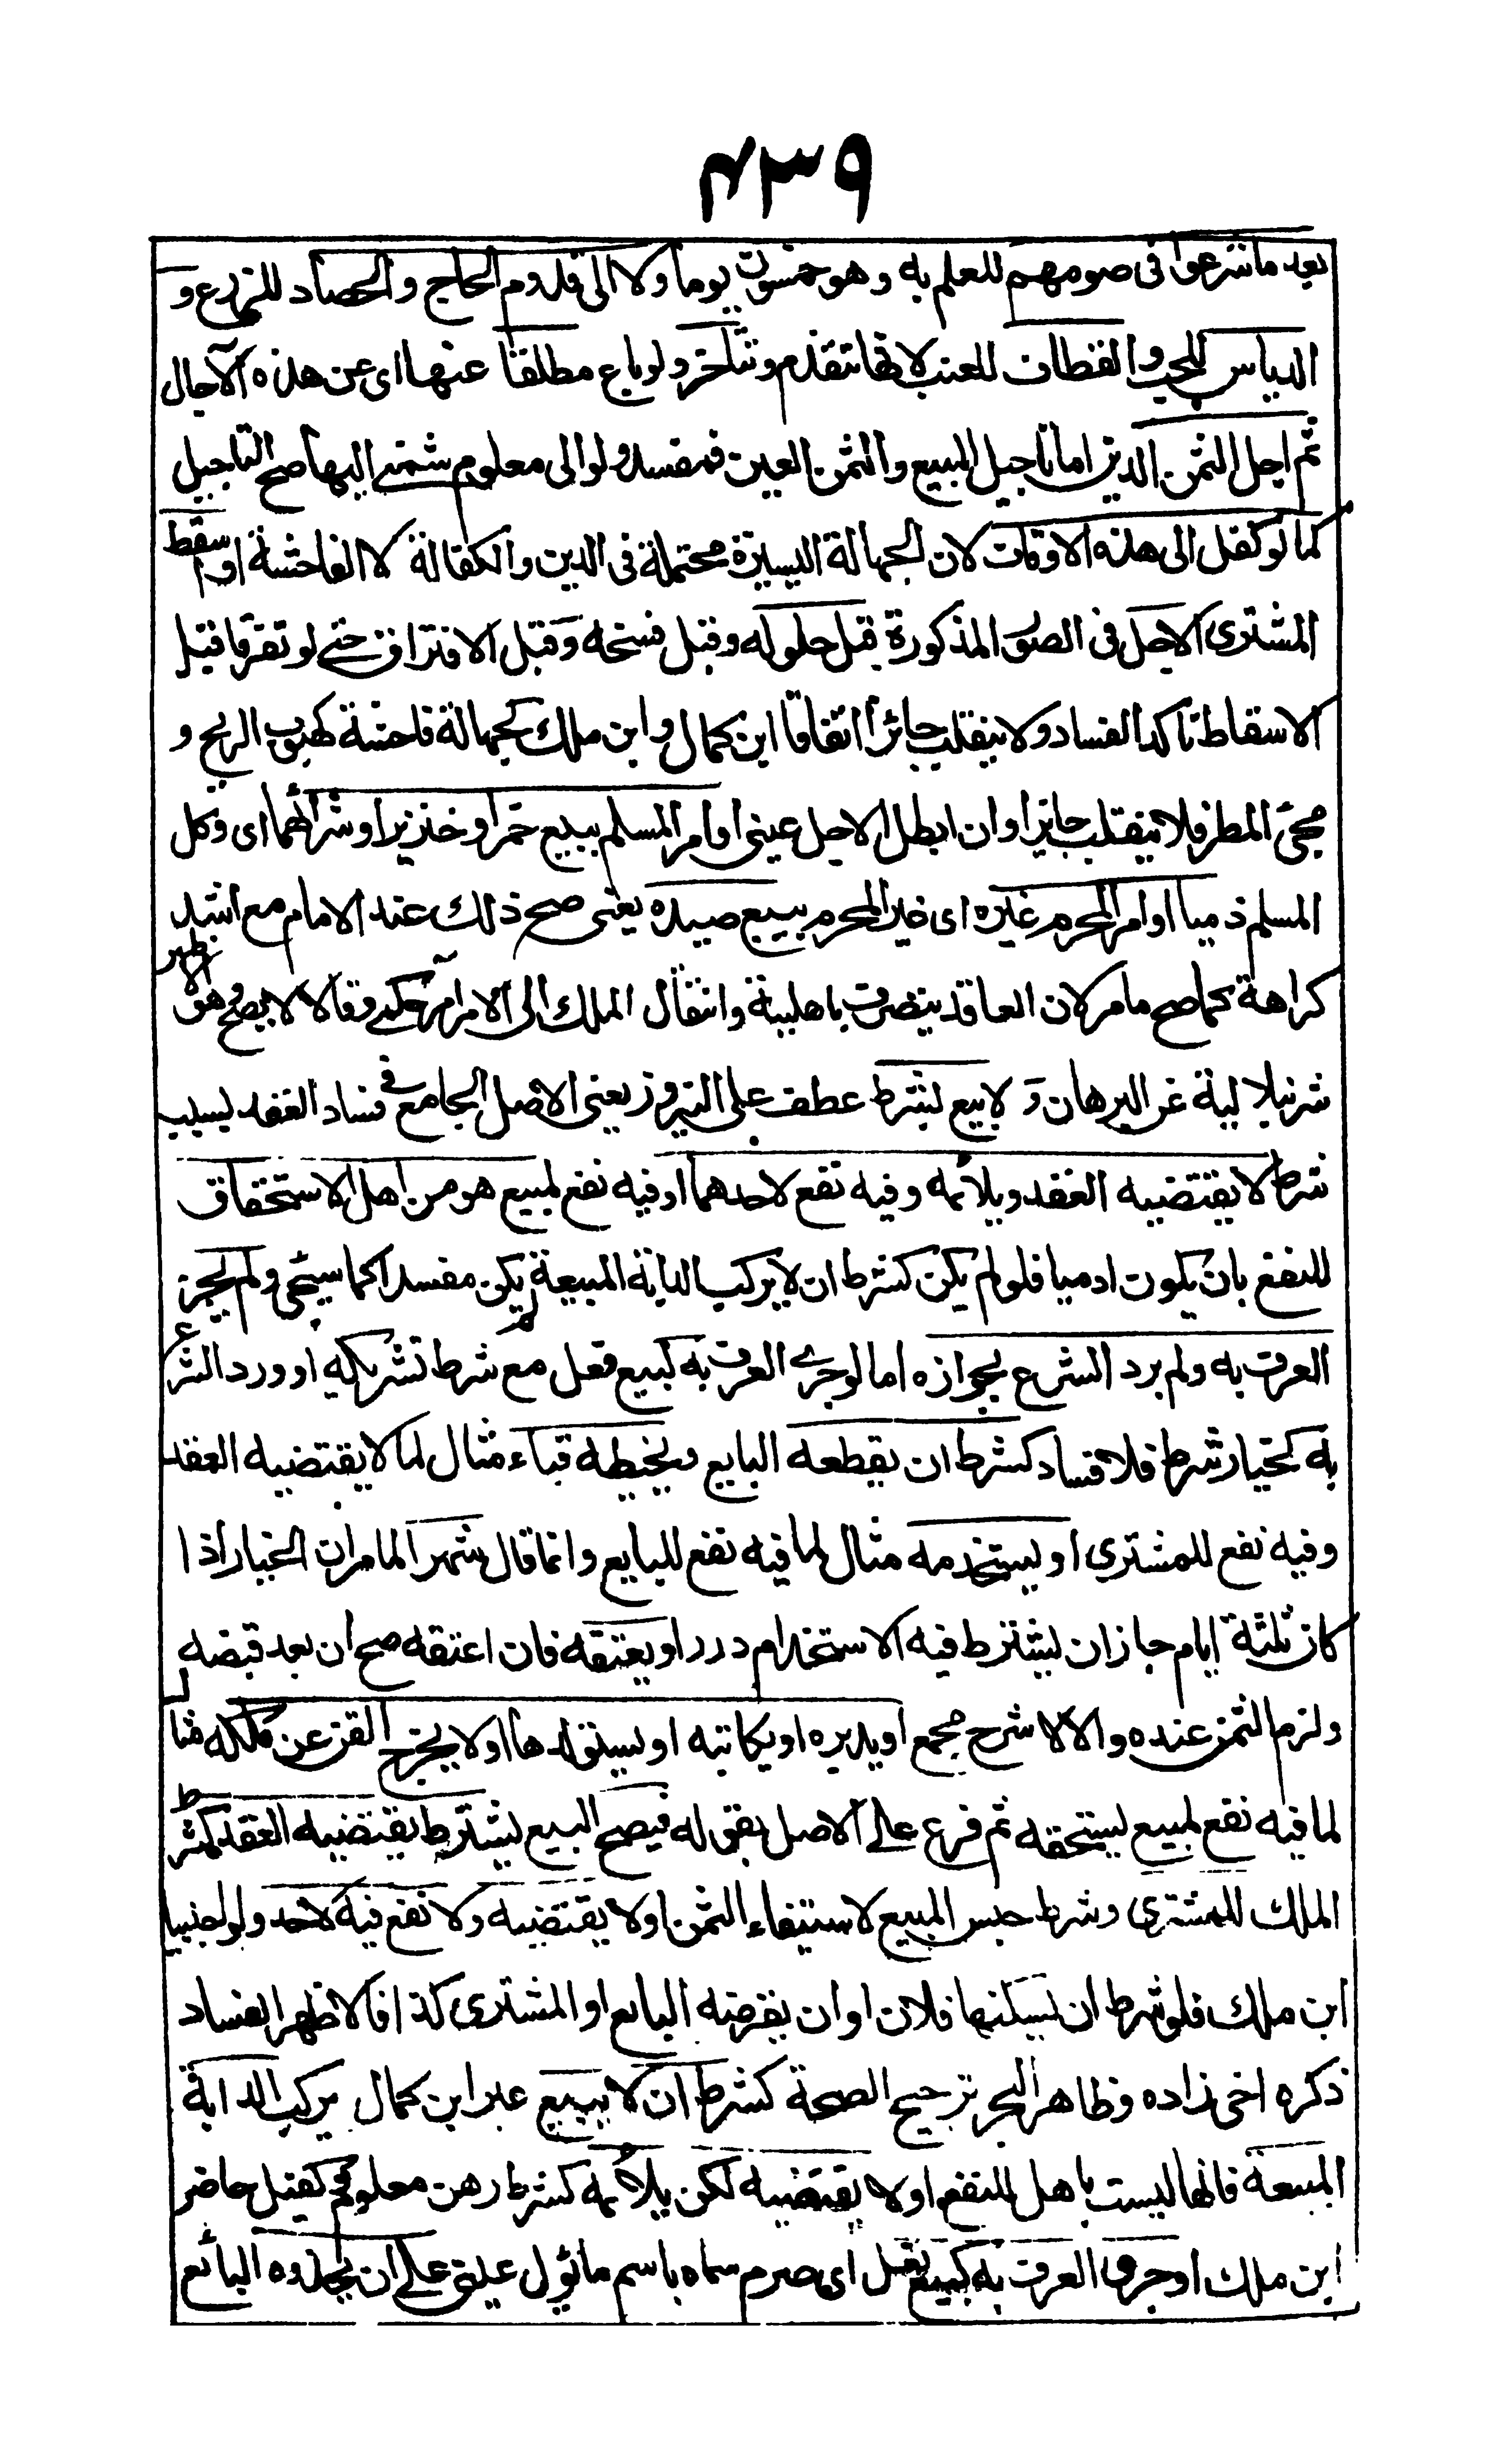 ٤٣٩
بعد ما شرعوا فى صومهم للعلم به وهو خمسون يوما ولا الى قدوم الحاج والحصاد للزرع و
الدياس للحب والقطاف للعنب لانها تتقدم وتتأخر ولو باع مطلقا عنها اى عن هذه الآجال
ثم اجل الثمن الدين اما تاجيل المبيع والثمن العين فمفسد ولو الى معلوم شمنى اليها صح التاجيل
كما لو كفل الى هذه الاوقات لان الجهالة اليسيرة محتملة فى الدين والكفالة لا الفاحشة او اسقط
المشترى الاجل فى الصور المذكورة قبل حلوله وقبل فسخه وقبل الافتراق حتى لو تفرقا قبل
الاسقاط تأكد الفساد ولا ينقلب جائزا اتفاقا ابن كمال وابن ملك كجهالة فاحشة كهبوب الريح و
مجئ المطر فلا ينقلب جايزا وان ابطل الاجل عينى او امر المسلم ببيع خمر او خنزير او شرائهما اى وكل
المسلم ذميا او امر المحرم غيره اى غير المحرم ببيع صيده يعنى صح ذلك عند الامام مع اشد
كراهة كما صح ما مر لان العاقد يتصرف باهليته وانتقال الملك الى الامر امر حكمى وقالا لا يصح وهو الاظهر
شرنبلالية عن البرهان و لا بيع بشرط عطف على النيروز يعنى الاصل الجامع فى فساد العقد بسبب
شرط لا يقتضيه العقد ويلائمه وفيه نفع لاحدهما او فيه نفع لمبيع هو من اهل الاستحقاق
للنفع بان يكون ادميا فلو لم يكن كشرط ان لا يركب الدابة المبيعة لم يكن مفسدا كما سيجئ ولم يجز
العرف به ولم يرد الشرع بجوازه اما لو جرى العرف به كبيع نعل مع شرط تشريكه او ورد الشرع
به كخيار شرط فلا فساد كشرط ان يقطعه البايع ويخيطه قباء مثال لما لا يقتضيه العقد
وفيه نفع للمشترى او يستخدمه مثال لما فيه نفع للبايع وانما قال شهرا لما مر ان الخيار اذا
كان ثلثة ايام جاز ان يشترط فيه الاستخدام درر او يعتقه فان اعتقه صح ان بعد قبضه
ولزم الثمن عنده والا لا شرح مجمع او يدبره او يكاتبه او يستولدها او لا يخرج القن عن ملكه مثال
لما فيه نفع لمبيع يستحقه ثم فرع على الاصل بقوله فيصح البيع بشرط يقتضيه العقد كشرط
الملك للمشترى وشرط حبس المبيع لاستيفاء الثمن او لا يقتضيه ولا نفع فيه لاحد ولو اجنبيا
ابن ملك فلو شرط ان يسكنها فلان او ان يقرضه البايع او المشترى كذا فالاظهر الفساد
ذكره اخى زاده وظاهر البحر ترجيح الصحة كشرط ان لا يبيع عبر ابن كمال يركب الدابة
المبيعة فانها ليست باهل للنفع او لا يقتضيه لكن يلائمه كشرط رهن معلوم وكفيل حاضر
ابن ملك او جرى العرف به كبيع نعل اى صرم سماه باسم ما يؤل عينى على ان يحذوه البائع